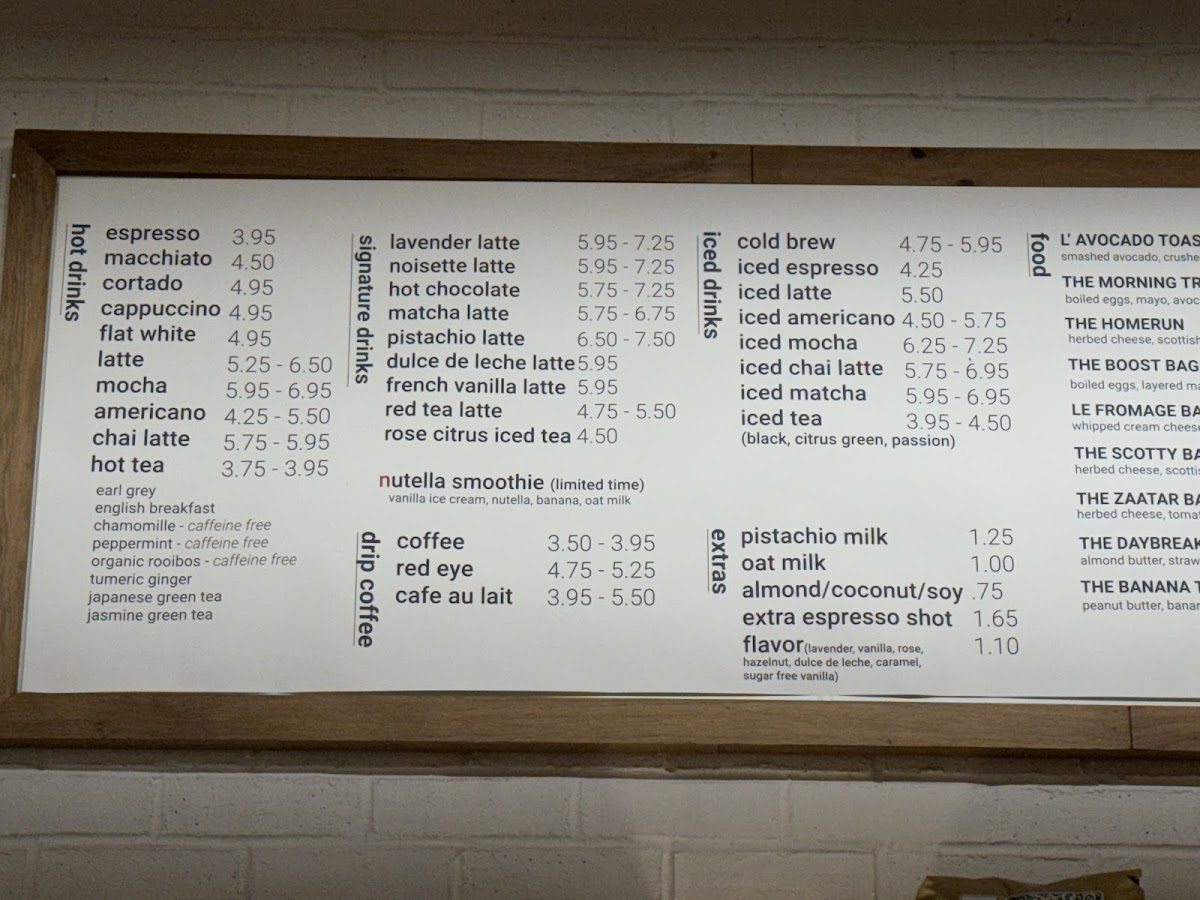 hot drinks
espresso 3.95
macchiato 4.50
cortado 4.95
cappuccino 4.95
flat white 4.95
latte 5.25 - 6.50
mocha 5.95 - 6.95
americano 4.25 - 5.50
chai latte 5.75 - 5.95
hot tea 3.75 - 3.95
earl grey
english breakfast
chamomille - caffeine free
peppermint - caffeine free
organic rooibos - caffeine free
tumeric ginger
japanese green tea
jasmine green tea
signature drinks
lavender latte 5.95 - 7.25
noisette latte 5.95 - 7.25
hot chocolate 5.75 - 7.25
matcha latte 5.75 - 6.75
pistachio latte 6.50 - 7.50
dulce de leche latte 5.95
french vanilla latte 5.95
red tea latte 4.75 - 5.50
rose citrus iced tea 4.50
nutella smoothie (limited time)
vanilla ice cream, nutella, banana, oat milk
drip coffee
coffee 3.50 - 3.95
red eye 4.75 - 5.25
cafe au lait 3.95 - 5.50
iced drinks
cold brew 4.75 - 5.95
iced espresso 4.25
iced latte 5.50
iced americano 4.50 - 5.75
iced mocha 6.25 - 7.25
iced chai latte 5.75 - 6.95
iced matcha 5.95 - 6.95
iced tea 3.95 - 4.50
(black, citrus green, passion)
extras
pistachio milk 1.25
oat milk 1.00
almond/coconut/soy .75
extra espresso shot 1.65
flavor (lavender, vanilla, rose, 1.10
hazelnut, dulce de leche, caramel,
sugar free vanilla)
food
L' AVOCADO TOAS
smashed avocado, crushe
THE MORNING TR
boiled eggs, mayo, avoc
THE HOMERUN
herbed cheese, scottish
THE BOOST BAG
boiled eggs, layered ma
LE FROMAGE BA
whipped cream cheese
THE SCOTTY BA
herbed cheese, scottis
THE ZAATAR BA
herbed cheese, tomat
THE DAYBREAK
almond butter, straw
THE BANANA T
peanut butter, banan